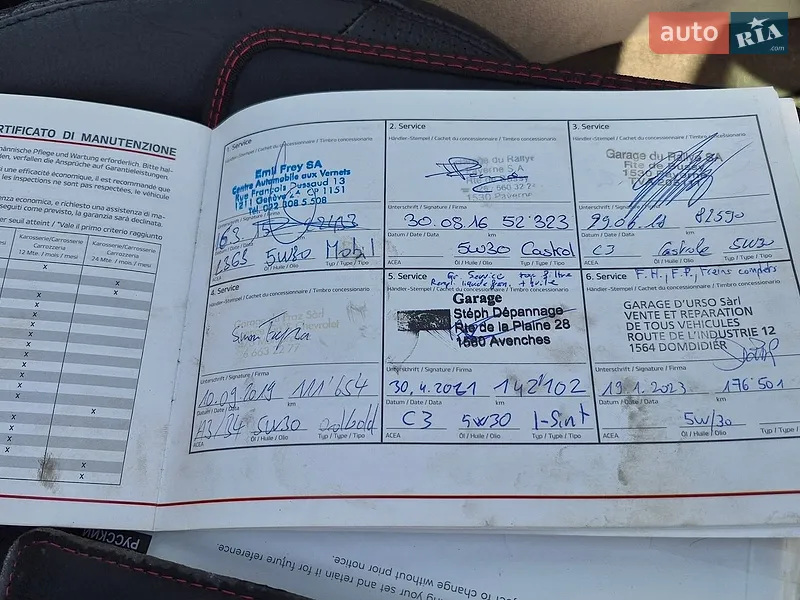 auto RIA .com
CERTIFICATO DI MANUTENZIONE
männische Pflege und Wartung erforderlich. Bitte hal-
den, verfallen die Ansprüche auf Garantieleistungen.
une efficacité économique, il est recommandé que
les inspections ne sont pas respectées, le véhicule
economica, è richiesto una assistenza di ma-
seguiti come previsto, la garanzia sarà declinata.
seul atteint / *Vale il primo criterio raggiunto
Karosserie/Carrosserie
Carrozzeria
12 Mte. / mois / mesi
Karosserie/Carrosserie
Carrozzeria
24 Mte. / mois / mesi
1. Service
Händler-Stempel / Cachet du concessionnaire / Timbro concessionario
Emil Frey SA
Centre Automobile aux Vernets
Rue François Dussaud 13
1211 Genève CP 1151
Tél. 022 308 5 508
Unterschrift / Signature / Firma
Datum / Date / Data
km
5W30 Mobil
ACEA
Öl / Huile / Olio
Typ / Type / Tipo
2. Service
Händler-Stempel / Cachet du concessionnaire / Timbro concessionario
du Rallye
1530 Payerne
Unterschrift / Signature / Firma
30.08.16 52'323
Datum / Date / Data
km
5W30 Castrol
ACEA
Öl / Huile / Olio
Typ / Type / Tipo
3. Service
Händler-Stempel / Cachet du concessionnaire / Timbro concessionario
Garage du Rallye SA
Rte de
1530 Payerne
Unterschrift / Signature / Firma
82590
Datum / Date / Data
km
C3 5W30
ACEA
Öl / Huile / Olio
Typ / Type / Tipo
4. Service
Händler-Stempel / Cachet du concessionnaire / Timbro concessionario
Sàrl
Unterschrift / Signature / Firma
10.09.2019 111'654
Datum / Date / Data
km
5W30
ACEA
Öl / Huile / Olio
Typ / Type / Tipo
5. Service Gr. Service
Händler-Stempel / Cachet du concessionnaire / Timbro concessionario
Garage
Stéph Dépannage
Rte de la Plaine 28
1580 Avenches
Unterschrift / Signature / Firma
30.4.2021 142'102
Datum / Date / Data
km
C3 5W30
ACEA
Öl / Huile / Olio
Typ / Type / Tipo
6. Service F.H., F.P., Freins
Händler-Stempel / Cachet du concessionnaire / Timbro concessionario
GARAGE D'URSO Sàrl
VENTE ET REPARATION
DE TOUS VEHICULES
ROUTE DE L'INDUSTRIE 12
1564 DOMDIDIER
Unterschrift / Signature / Firma
19.1.2023 176'501
Datum / Date / Data
km
5W/30
ACEA
Öl / Huile / Olio
Typ / Type / Tipo
РУССКИЙ
ct to change without prior notice.
ing your set and retain it for future reference.